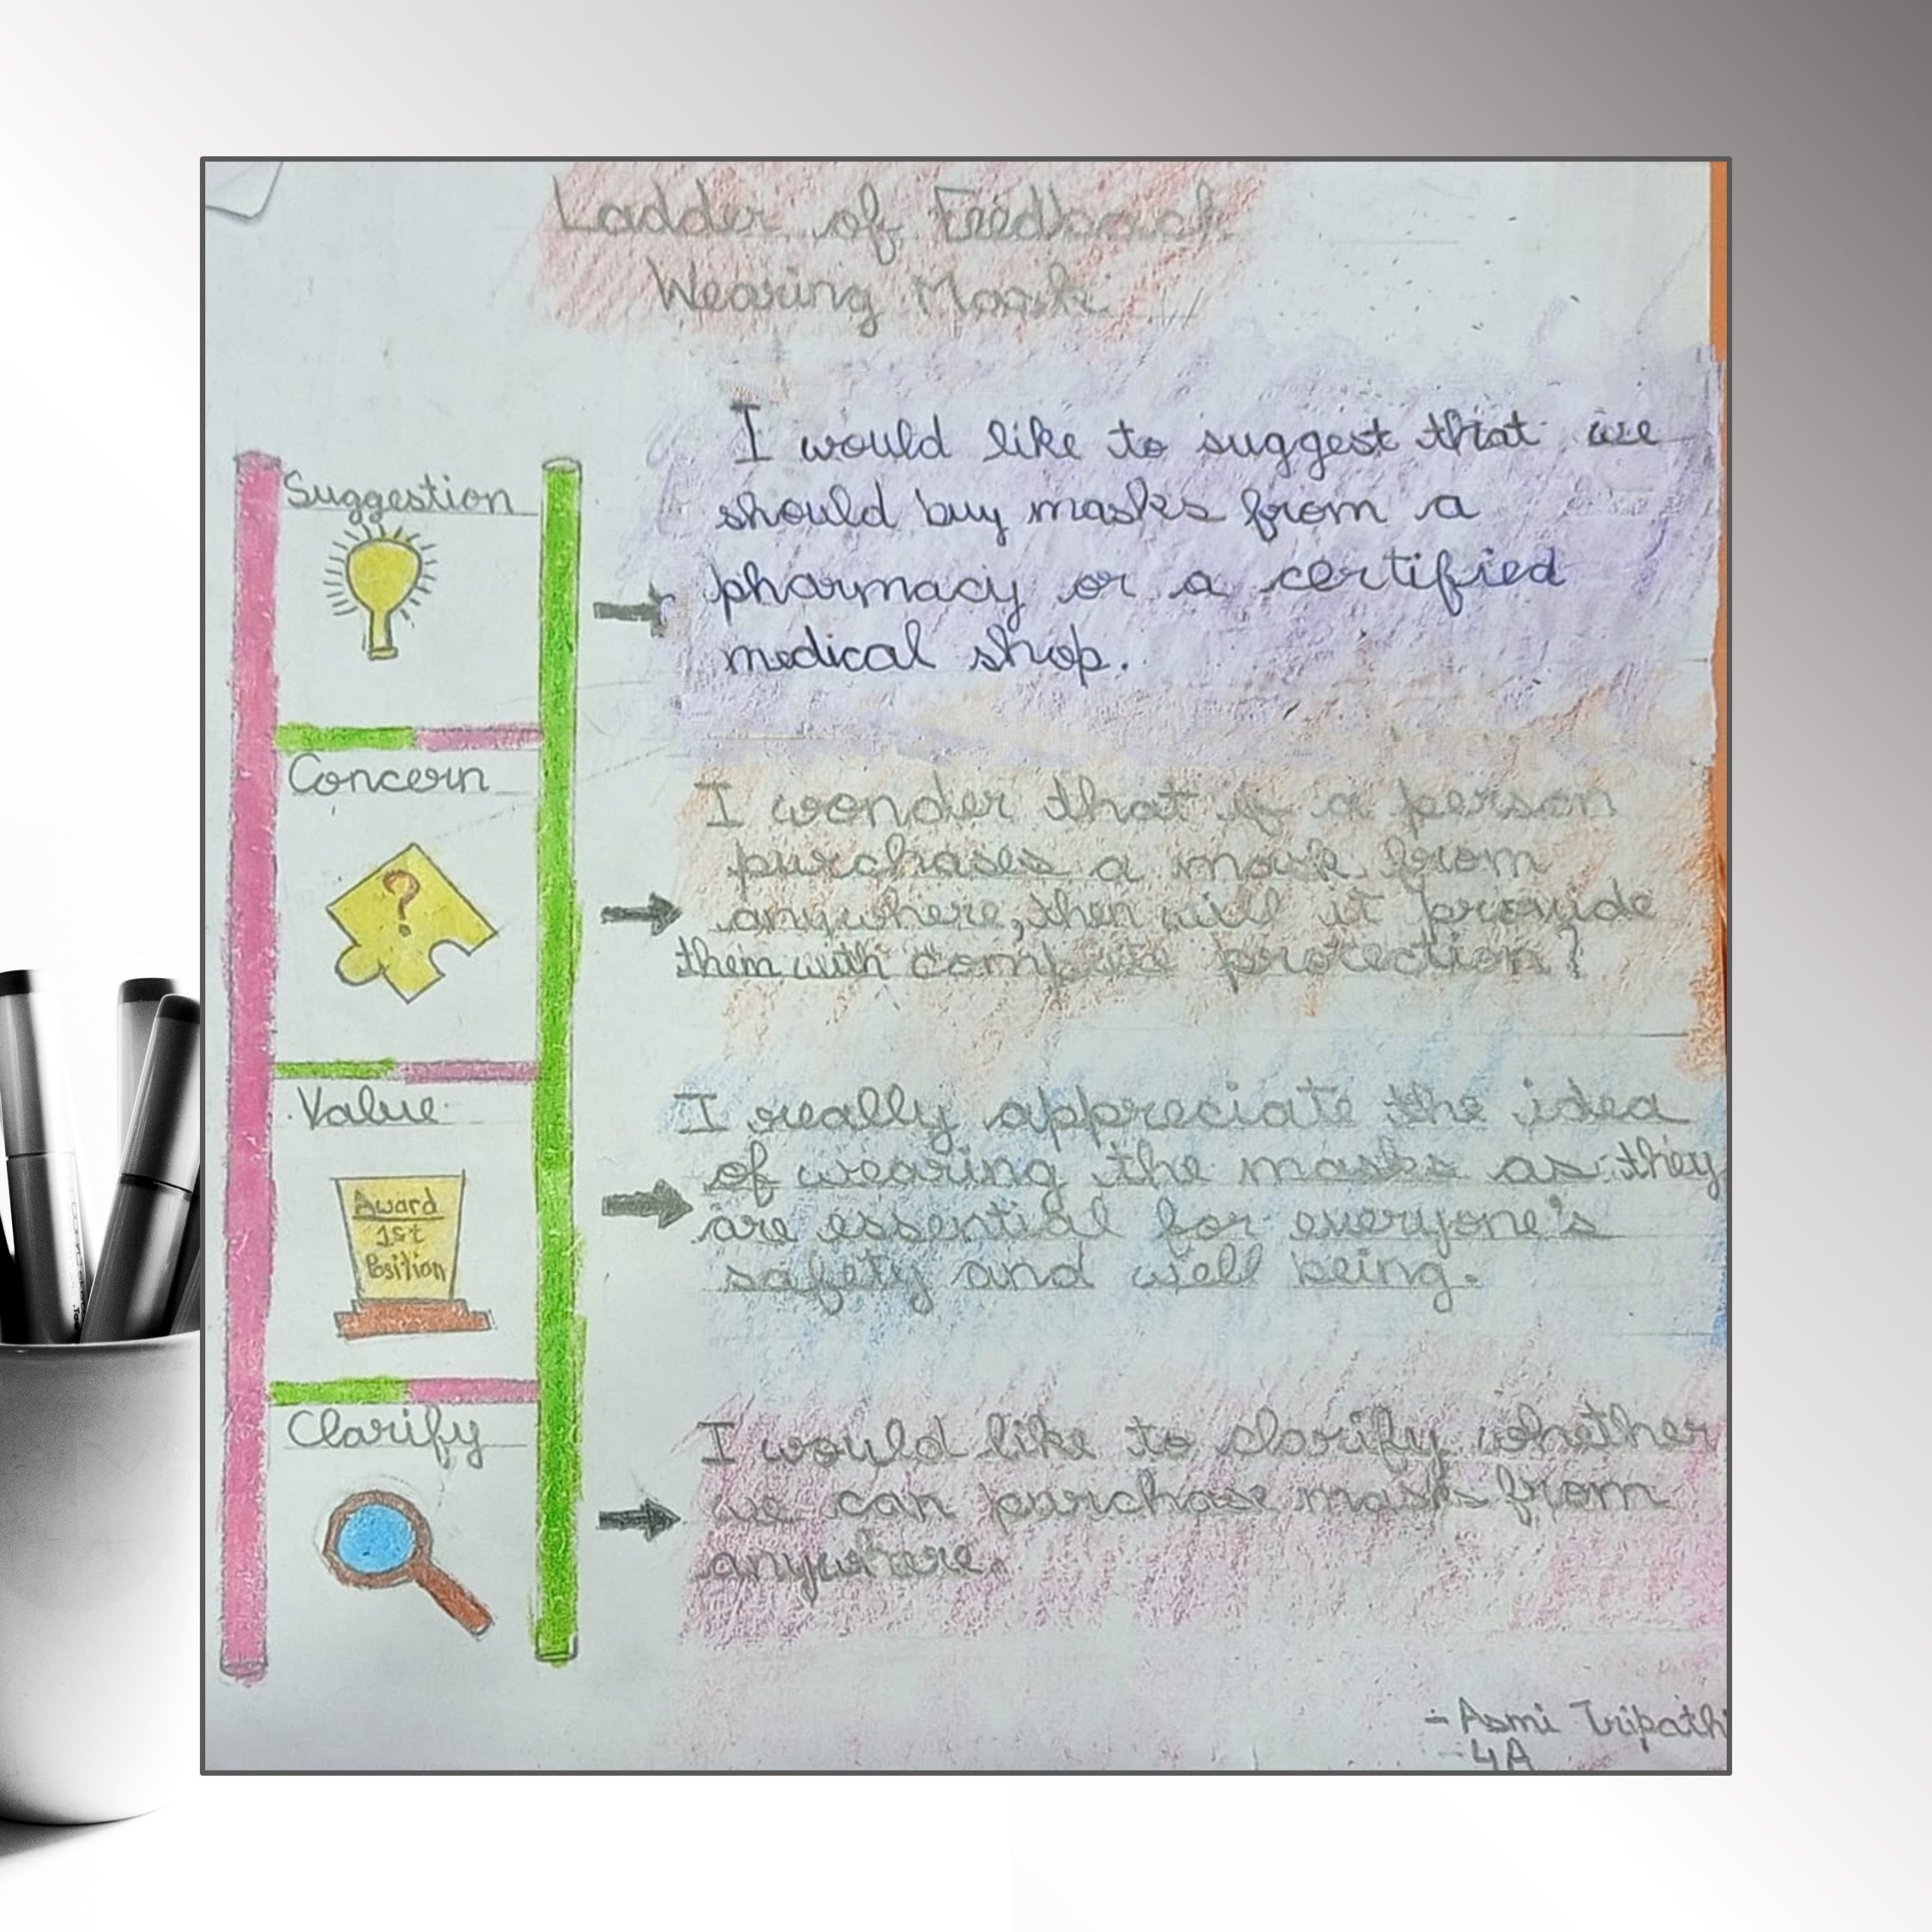 Ladder of Feedback
Wearing Mask
Suggestion
I would like to suggest that we
should buy masks from a
pharmacy or a certified
medical shop.
Concern
?
I wonder that if a person
purchases a mask from
anywhere, then will it provide
them with complete protection?
Value
Award
1st
Position
I really appreciate the idea
of wearing the masks as they
are essential for everyone's
safety and well being.
Clarify
I would like to clarify whether
we can purchase masks from
anywhere.
- Asmi Tripathi
- 4A